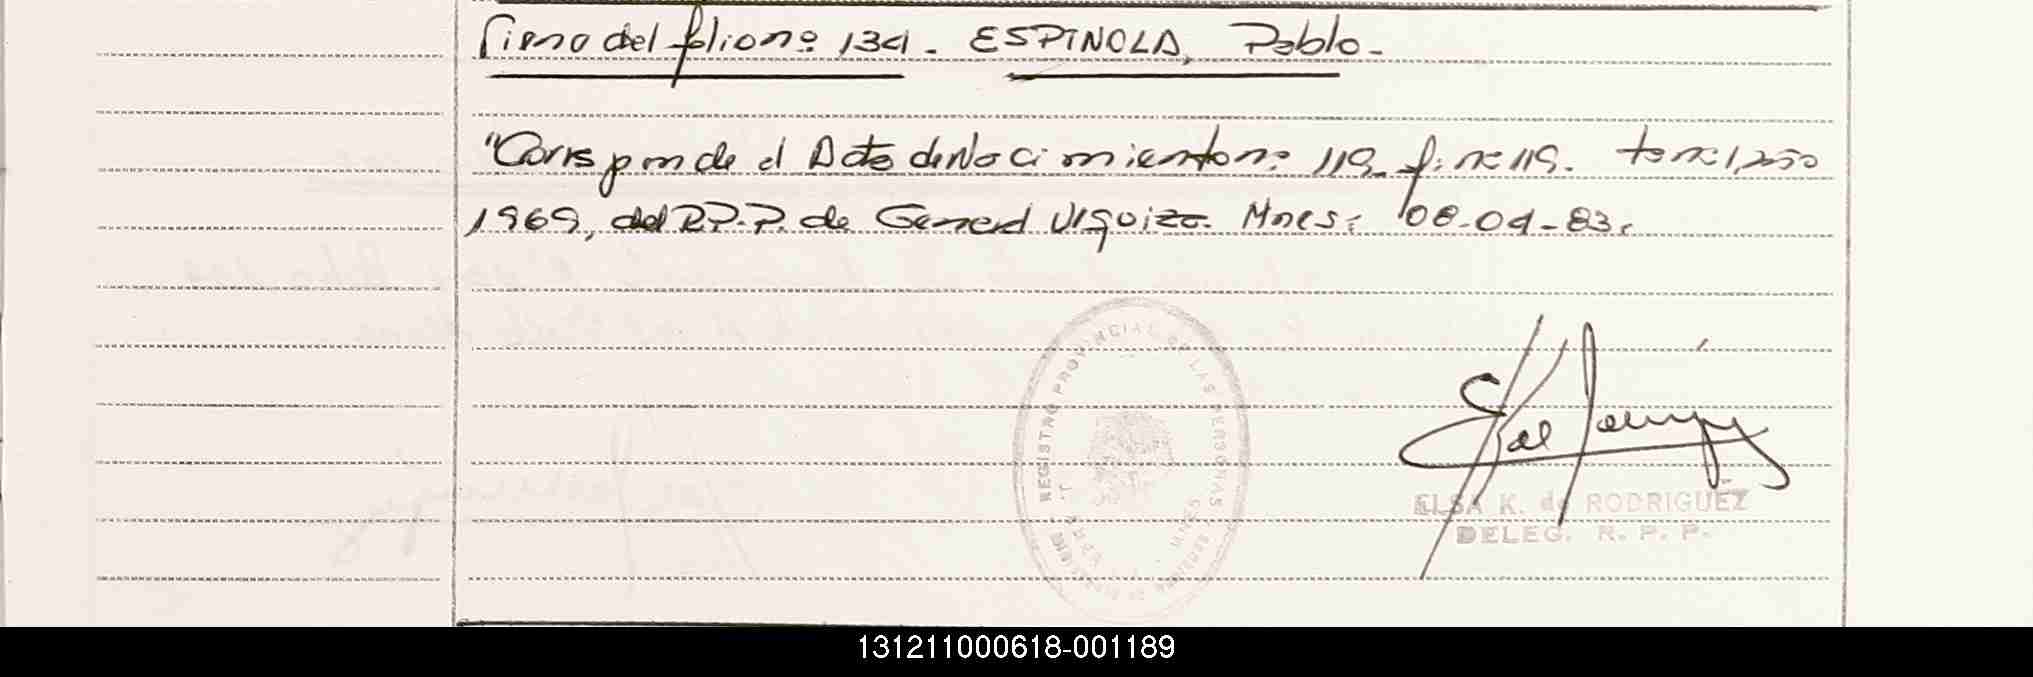 Viene del folio nº 134. ESPINOLA, Pablo.
"Corresponde al Acta de Nacimiento nº 119. f. nº 119. tomo 1, año
1969, del R.P.P. de General Urquiza. Mnes: 08-04-83.
REGISTRO PROVINCIAL DE LAS PERSONAS
ELSA K. de RODRIGUEZ
DELEG. R. P. P.
131211000618-001189